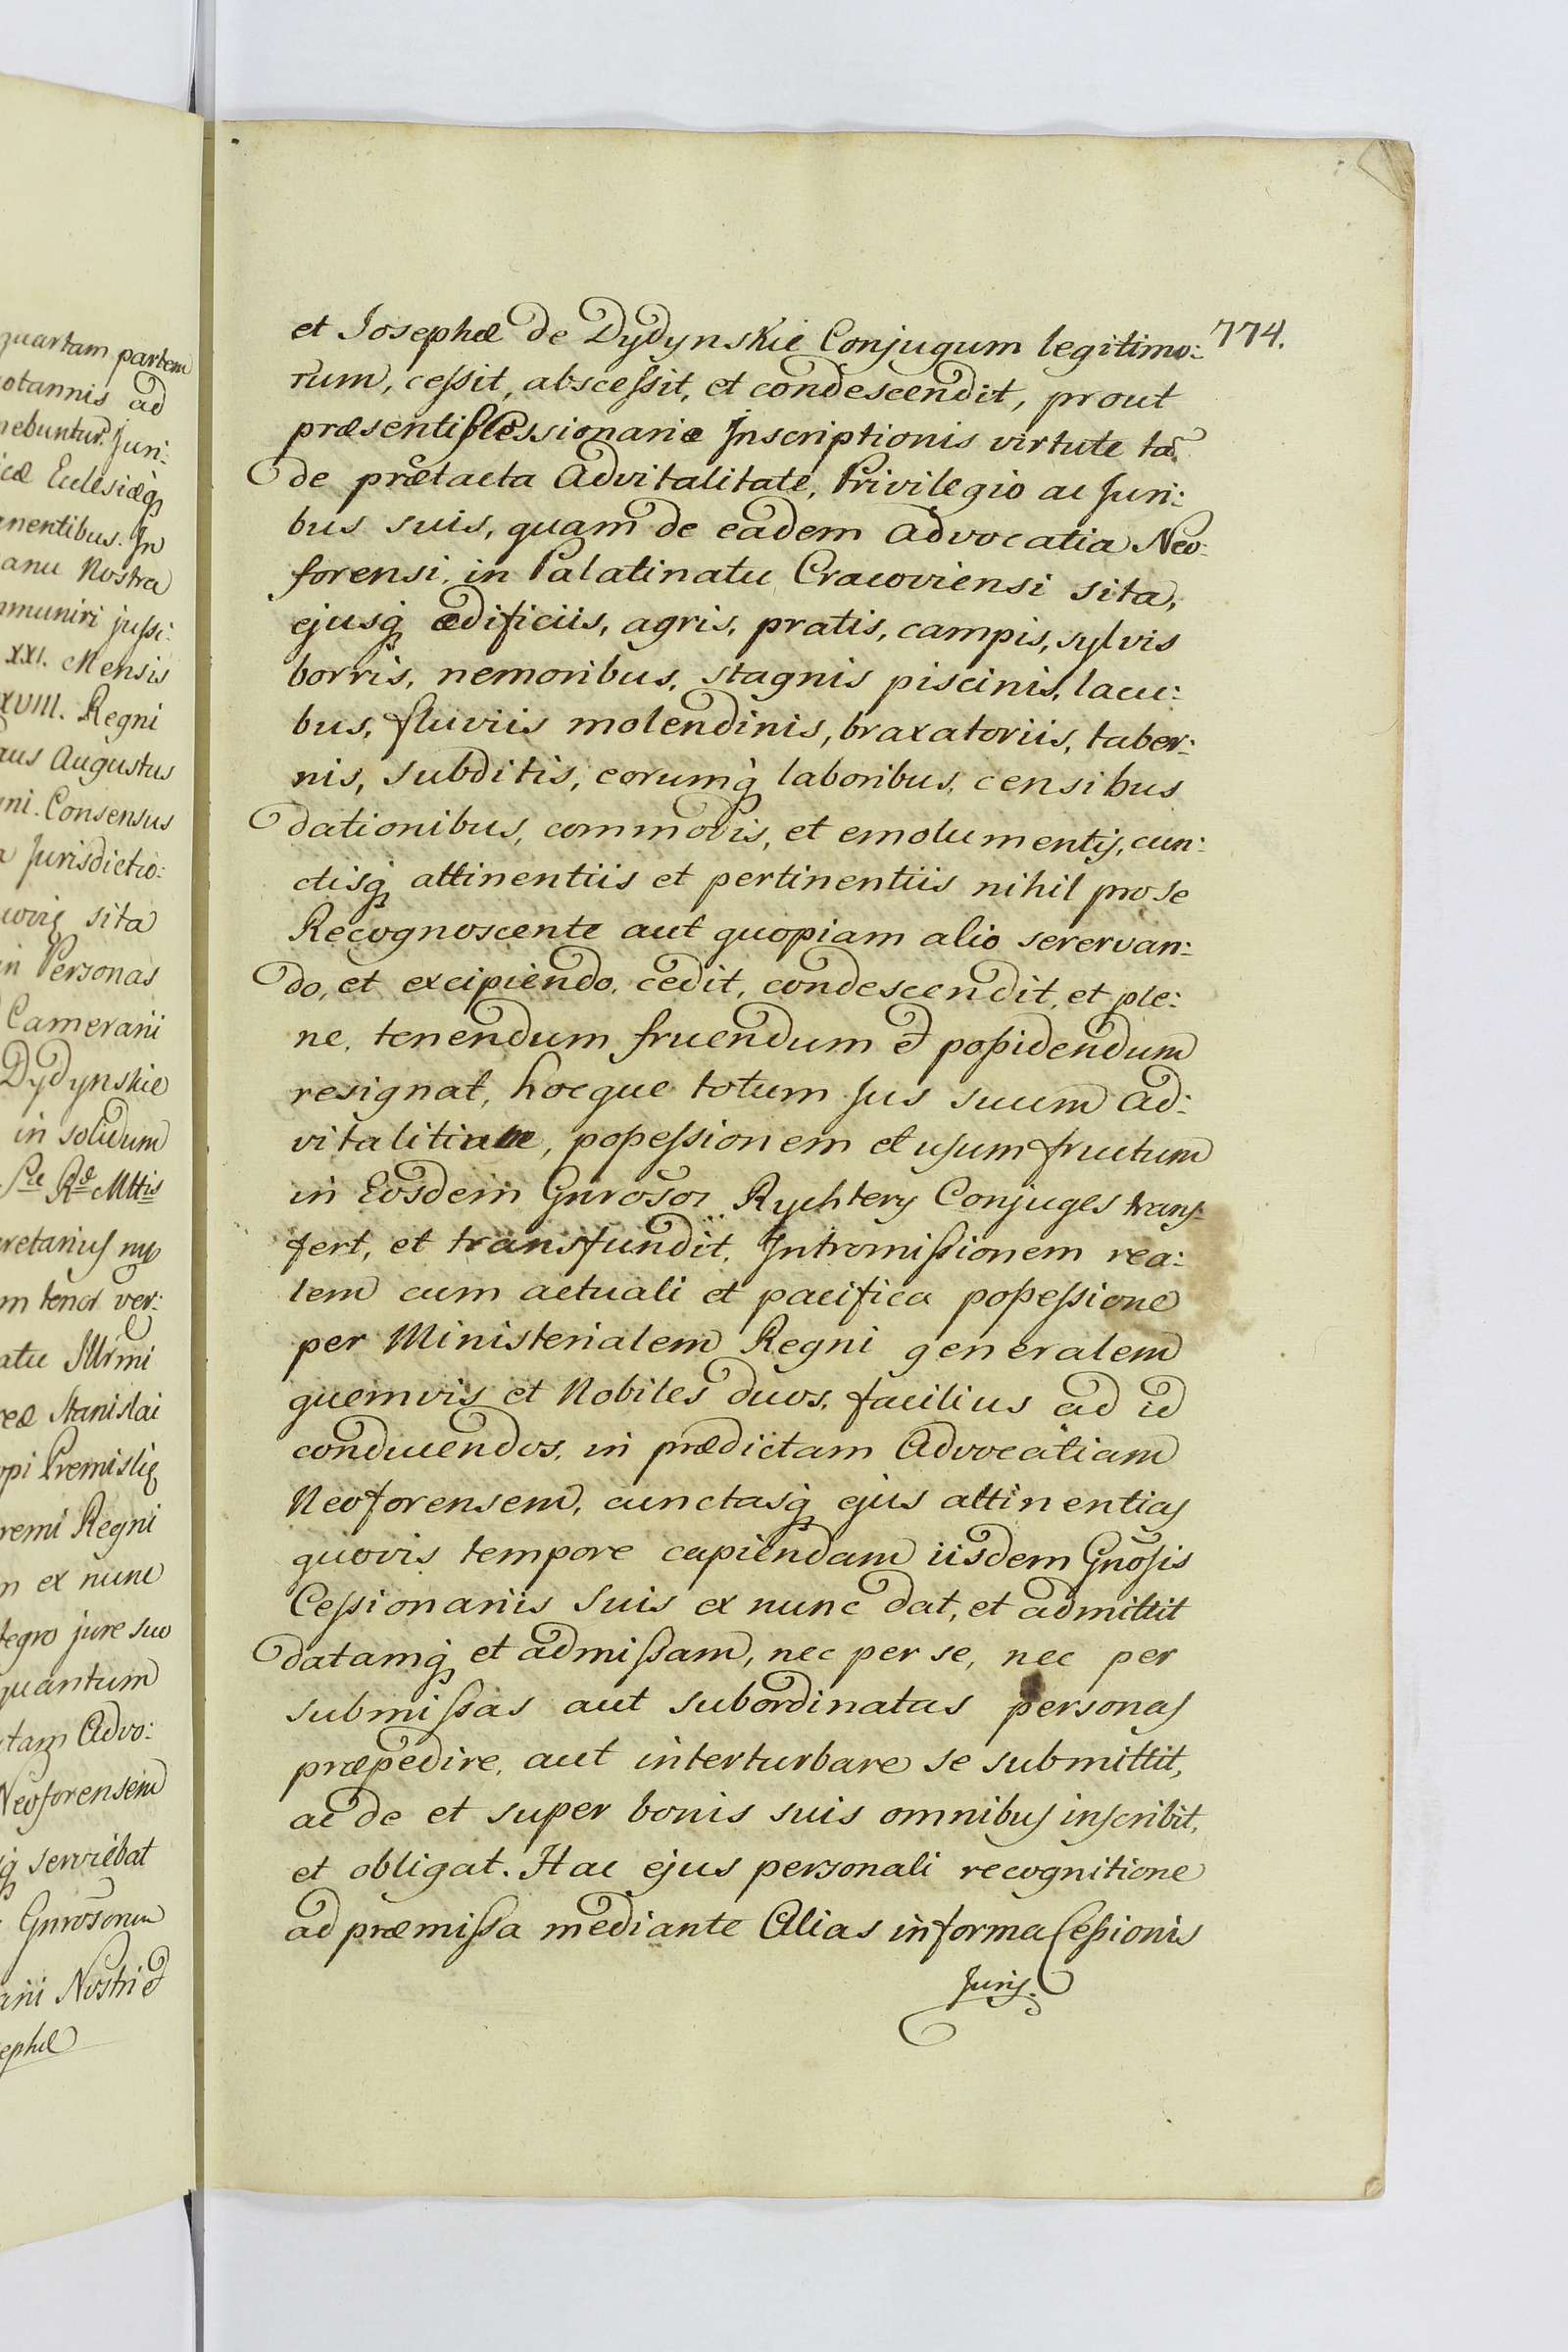 quartam partem
otannis ad
nebuntur. Juri:
icæ Ecclesiæq́
anentibus. In
anu Nostra
mmuniri jussi:
XXI. Mensis
XVIII. Regni
aus Augustus
mi. Consensus
a Jurisdictio:
sita
in Personas
Camerarii
Dydynskie
in solidum
Sæ Ræ Mttis
cretarius mp
m tenor ver:
atu Illrmi
reæ Stanislai
opi Premislię
remi Regni
m ex nunc
tegro jure suo
quantum
tam Advo:
Neoforensem
q́ serviebat
Gnrosorum
arii Nostri et
ephæ
774.
et Josephæ de Dydynskie Conjugum legitimo:
rum, cessit, abscessit, et condescendit, prout
præsentis Cessionariæ Inscriptionis virtute tã
de prætacta Advitalitate, Privilegio ac Juri:
bus suis, quam de eadem Advocatia Neo:
forensi, in Palatinatu Cracoviensi sita,
ejusq́ ædificiis, agris, pratis, campis, sylvis
borris, nemoribus, stagnis piscinis, lacu:
bus, fluviis molendinis, braxatoriis, taber:
nis, subditis, eorumq́ laboribus, censibus
dationibus, commodis, et emolumentis, cun:
ctisq́ attinentiis et pertinentiis nihil pro se
Recognoscente aut quopiam alio serervan:
do, et excipiendo, cedit, condescendit, et ple:
ne, tenendum fruendum et possidendum
resignat, hocque totum Jus suum Ad:
vitalitium, possessionem et usumfructum
in Eosdem Gnrosos Rychtery Conjuges trans:
fert, et transfundit, Intromissionem rea:
lem cum actuali et pacifica possessione
per Ministerialem Regni generalem
quemvis et Nobiles duos, facilius ad id
conducendos, in prædictam Advocatiam
Neoforensem, cunctasq́ ejus attinentias
quovis tempore capiendam iisdem Gnõsis
Cessionariis suis ex nunc dat, et admittit
datamq́ et admissam, nec per se, nec per
submissas aut subordinatas personas
præpedire, aut interturbare se submittit,
ac de et super bonis suis omnibus inscribit,
et obligat. Hac ejus personali recognitione
ad præmissa mediante Alias in forma Cessionis
Juris.